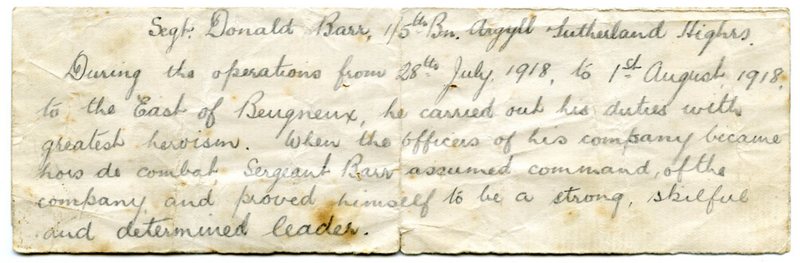 Segt. Donald Barr, 1/5th Bn. Argyll & Sutherland Highrs.
During the operations from 28th July, 1918, to 1st August, 1918,
to the East of Beugneux, he carried out his duties with
greatest heroism. When the officers of his company became
hors de combat Sergeant Barr assumed command, of the
company and proved himself to be a strong, skilful
and determined leader.